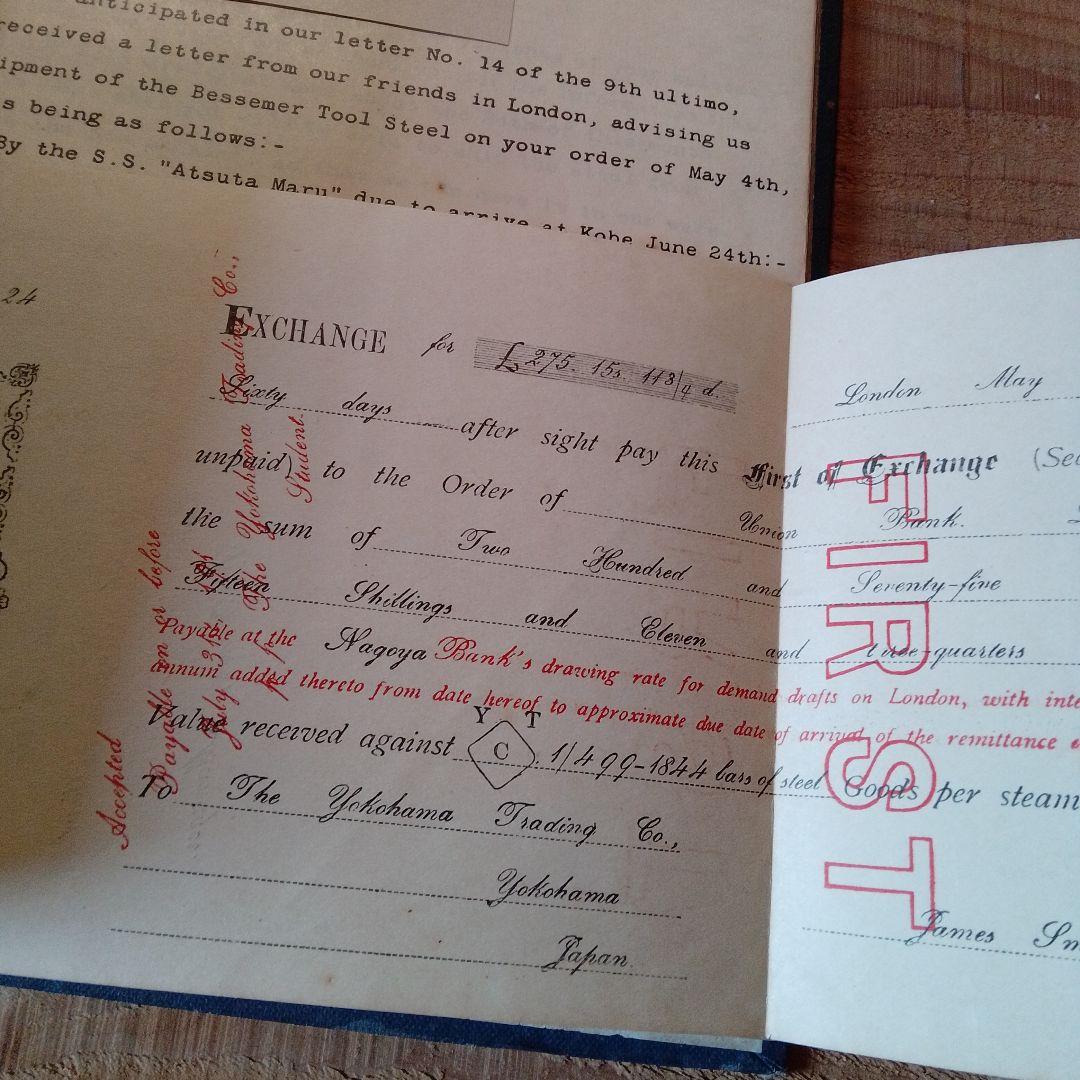 anticipated in our letter No. 14 of the 9th ultimo,
received a letter from our friends in London, advising us
ipment of the Bessemer Tool Steel on your order of May 4th,
s being as follows:-
By the S.S. "Atsuta Maru" due to arrive at Kobe June 24th:-
24
EXCHANGE for £ 275. 15s. 11 3/4 d.
London May
Sixty days after sight pay this First of Exchange (Sec
unpaid) to the Order of Union Bank.
the sum of Two Hundred and Seventy-five
Fifteen Shillings and Eleven and three-quarters
Payable at the Nagoya Bank's drawing rate for demand drafts on London, with inte
annum added thereto from date hereof to approximate due date of arrival of the remittance
Value received against Y T C 1/499-1844 bars of steel Goods per steam
To The Yokohama Trading Co.,
Yokohama
Japan.
James Sm
FIRST
Accepted
Payable on or before
July 31st
The Yokohama Trading Co.,
Student.